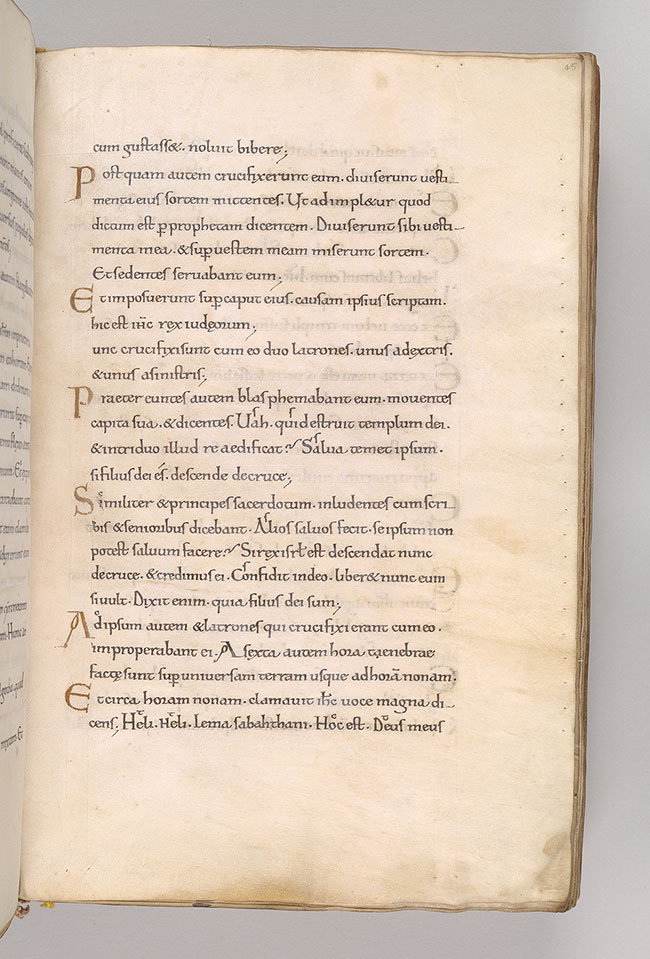 cum gustass&. noluit bibere;
Postquam autem crucifixerunt eum. diuiserunt uesti-
menta eius sortem mittentes. Ut adimpl&ur quod
dictum est p prophetam dicentem. Diuiserunt sibi uesti-
menta mea. & sup uestem meam miserunt sortem.
Et sedentes seruabant eum;
Et imposuerunt sup caput eius. causam ipsius scriptam.
hic est ihc rex iudęorum;
unc crucifixi sunt cum eo duo latrones. unus adextris.
& unus asinistris;
Praeter euntes autem blasphemabant eum. mouentes
capita sua. & dicentes. Uah. qui destruit templum dei.
& intriduo illud reaedificat. Salua temet ipsum.
si filius dei es. descende decruce;
Similiter & principes sacerdotum. inludentes cum scri
bis & senioribus dicebant. Alios saluos fecit. se ipsum non
potest saluum facere. Si rex isrl est descendat nunc
decruce. & credimus ei. Confidit indeo. liber& nunc eum
si uult. Dixit enim. quia filius dei sum;
Ad ipsum autem & latrones qui crucifixi erant cum eo.
improperabant ei. A sexta autem hora taenebrae
factę sunt sup uniuersam terram usque ad horā nonam.
Et circa horam nonam. clamauit ihc uoce magna di-
cens; Heli. Heli. Lema sabahthani. Hoc est. Deus meus